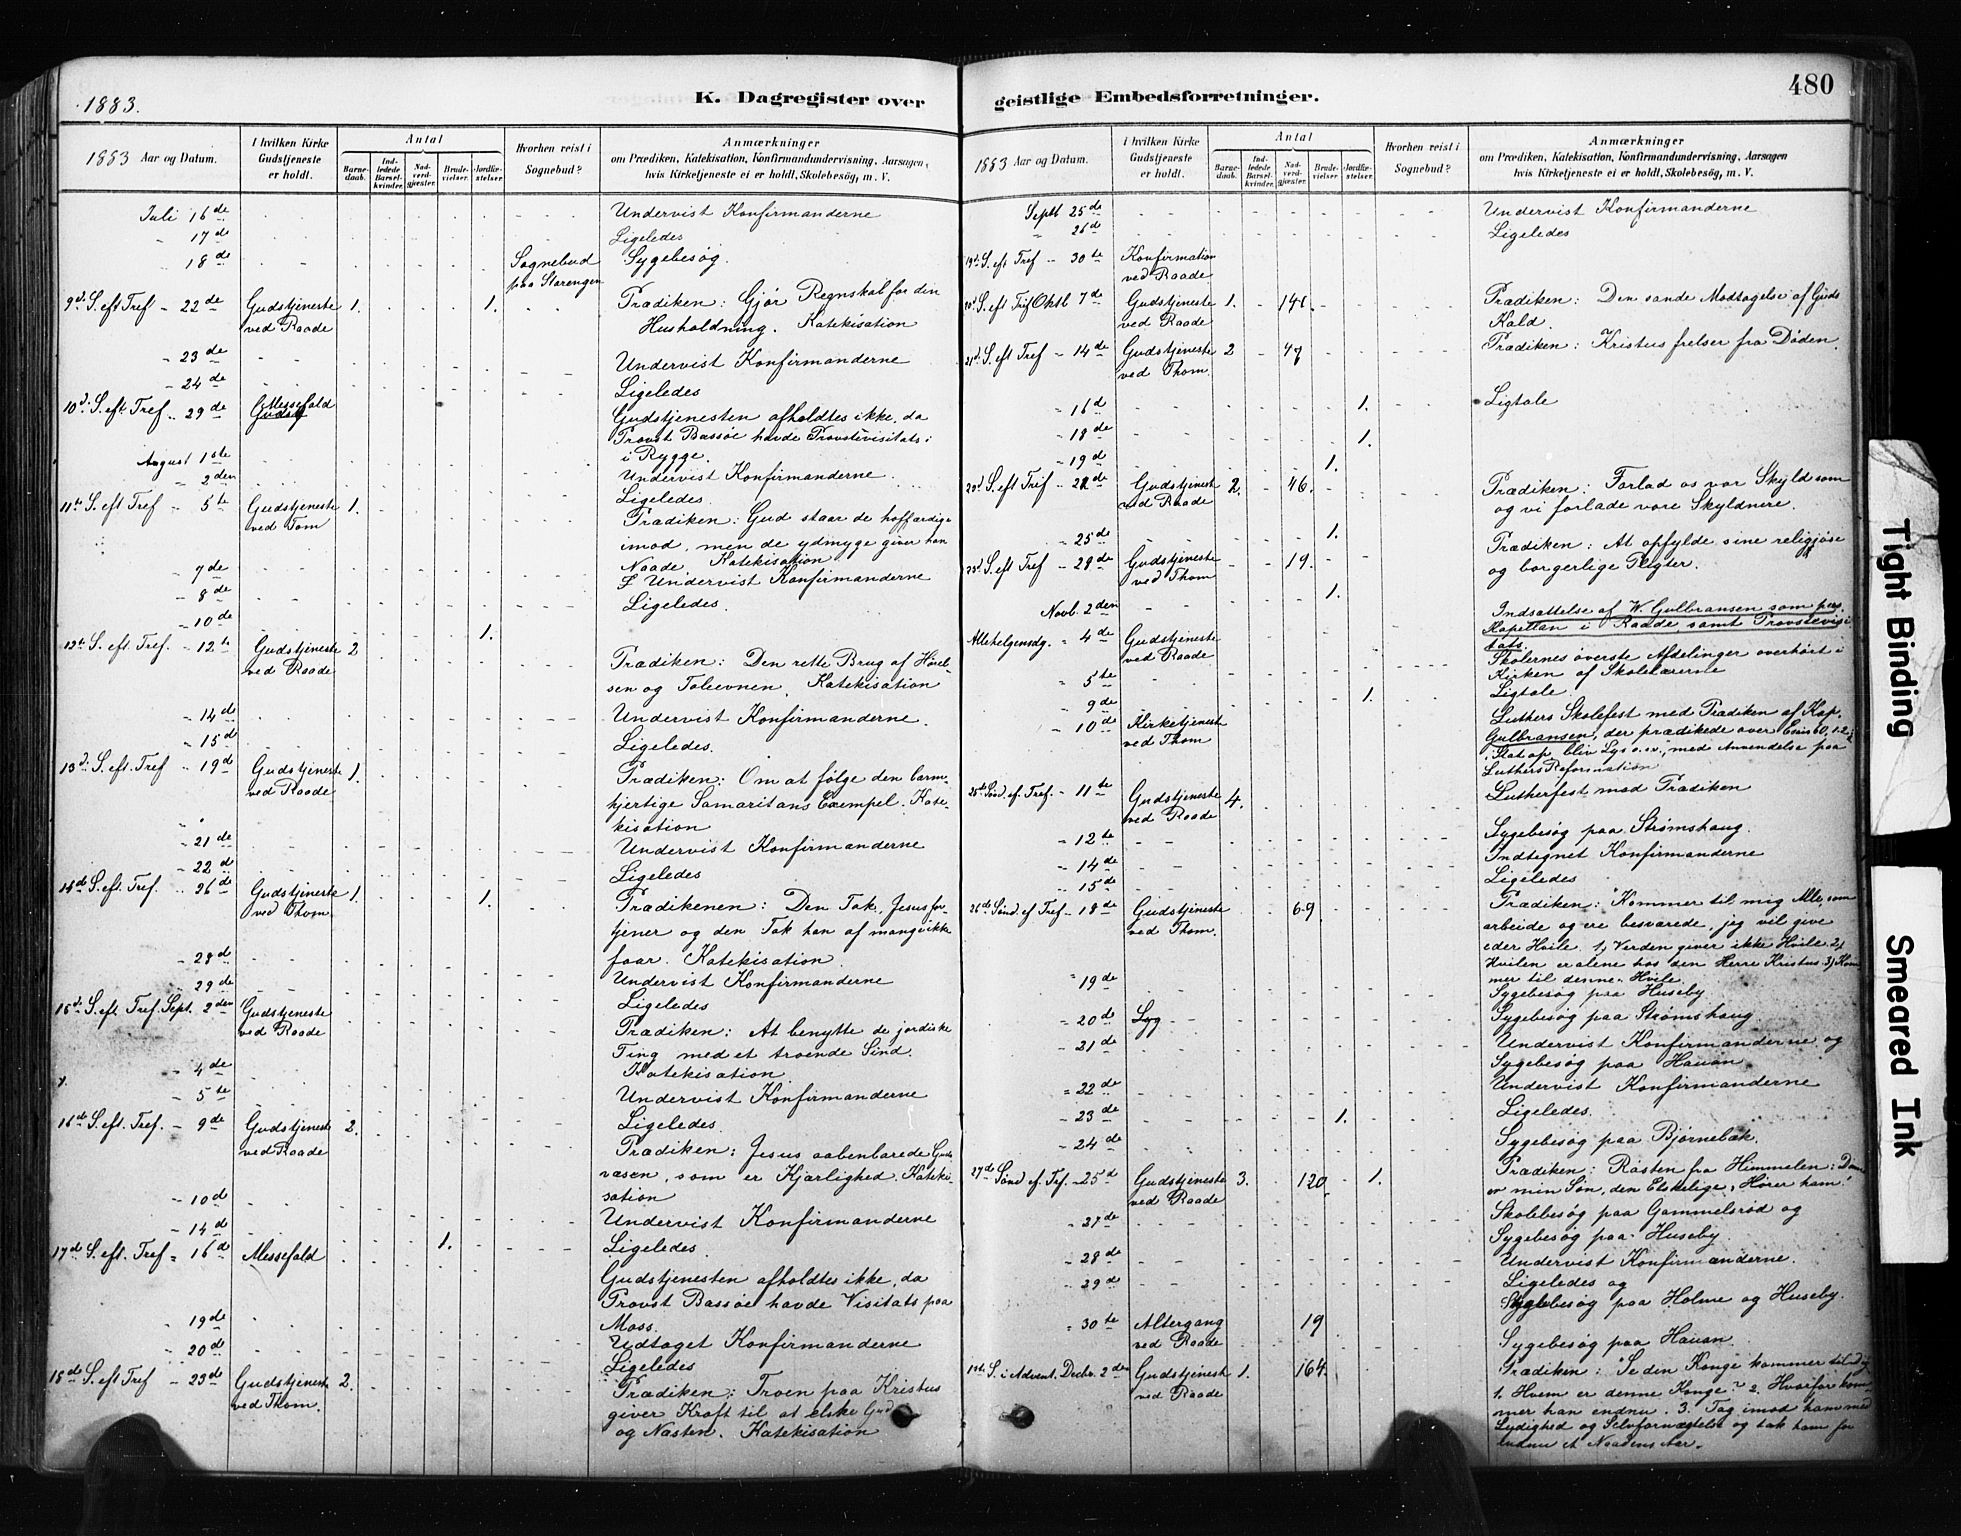 480
1883.
K. Dagregister over
geistlige Embedsforretninger.
1883 Aar og Datum.
I hvilken Kirke Gudstjeneste er holdt.
Antal
Barnedaab.
Indledede Barselkvinder.
Nadverdgjæster.
Brudevielser.
Jordfæstelser.
Hvorhen reist i Sognebud?
Anmærkninger
om Prædiken, Katekisation, Konfirmandundervisning, Aarsagen, hvis Kirketjeneste ei er holdt, Skolebesøg, m. V.
Juli 16de Undervist Konfirmanderne
" 17de Ligeledes
" 18de Sognebud paa Starengen Sygebesøg.
9d S. eft Tref - 22de Gudstjeneste ved Raade 1. 1. Prædiken: Gjør Regnskab for din
Husholdning. Katekisation
" 23de Undervist Konfirmanderne
" 24de Ligeledes
10d. S. eft Tref .. 29de Messefald Gudstjenesten afholdtes ikke, da
Provst Bassøe havde Provstevisitats i
i Rygge.
August 1ste Undervist Konfirmanderne
" 2den Ligeledes.
11te S. eft Tref " 5te Gudstjeneste ved Tom 1. Prædiken: Gud staar de hoffærdige
imod, men de ydmyge giver han
Naade. Katekisation
" 7de Undervist Konfirmanderne
" 8de Ligeledes.
" 10de 1.
12te S. eft. Tref. - 12te Gudstjeneste ved Raade 2 Prædiken: Den rette Brug af Hørel-
sen og Taleevnen. Katekisation
" 14d Undervist Konfirmanderne.
" 15d Ligeledes.
13d. S. eft. Tref " 19d Gudstjeneste ved Raade 1. Prædiken: Om at følge den barm-
hjertige Samaritans Exempel. Kate-
kisation
" 21de Undervist Konfirmanderne
" 22de Ligeledes
15d S. eft. Tref. " 26de Gudstjeneste ved Thom. 1. 1. Prædikenen: Den Tak, Jesus for-
tjener og den Tak han af mange ikke
faar. Katekisation.
" 28d Undervist Konfirmanderne
" 29de Ligeledes
15d. S. eft. Tref. Sept. 2den Gudstjeneste ved Raade Prædiken: At benytte de jordiske
Ting med et troende Sind.
Katekisation.
" 4de Undervist Konfirmanderne
" 5te Ligeledes.
16de S. eft. Tref. - 9de Gudstjeneste ved Raade 2. Prædiken: Jesus aabenbarede Guds
væsen, som er Kjærlighed. Kateki-
sation
" 10d Undervist Konfirmanderne
" 14d Ligeledes.
17de S. eft. Tref " 16d Messefald 1. Gudstjenesten afholdtes ikke, da
Provst Bassøe havde Visitats paa
Moss.
" 19de Udtaget Konfirmanderne
" 20d Ligeledes
18de S. eft Tref " 23de Gudstjeneste ved Thom. 2. Prædiken: Troen paa Kristus
giver Kraft til at elske Gud
og Næsten. Katekisation
1883 Aar og Datum.
I hvilken Kirke Gudstjeneste er holdt.
Antal
Barnedaab.
Indledede Barselkvinder.
Nadverdgjæster.
Brudevielser.
Jordfæstelser.
Hvorhen reist i Sognebud?
Anmærkninger
om Prædiken, Katekisation, Konfirmandundervisning, Aarsagen hvis Kirketjeneste ei er holdt, Skolebesøg, m. V.
Septb 25de Undervist Konfirmanderne
" 26de Ligeledes
19de S. eft Tref - 30te Konfirmation ved Raade
20d S. eft Tref Oktb 7de Gudstjeneste ved Raade 1. Prædiken: Den sande Modtagelse af Guds
Kald.
21d S. eft Tref - 14de Gudstjeneste ved Thom. 2 Prædiken: Kristus frelser fra Døden.
" 16d 1. Ligtale
" 18de 1.
" 19de 1.
S. eft Tref - de Gudstjeneste ved Raade 2. 46. Prædiken: Forlad os vor Skyld som
og vi forlade vore Skyldnere.
" 25de 1.
23d S. eft Tref - 28de Gudstjeneste ved Thom 19. Prædiken: At opfylde sine religiøse
og borgerlige Pligter.
Novb. 2den 1.
Allehelgensdg. " 4de Gudstjeneste ved Raade Indsættelse af W. Gulbransen som pers.
Kapellan i Raade, samt Provstevisi
tats.
" 5te Skolernes øverste Afdelinger overhørt i
Kirken af Skolelærerne
" 9de 1. Ligtale.
" 10de Kirketjenest ved Thom Luthers Skolefest med Prædiken af Kap.
Gulbransen, der prædikede over Esais 60, 1.2:
"Stat op, bliv Lys o.s.v." med Anvendelse paa
Luthers Reformation
25de Sønd. ef. Tref. - 11te Gudstjeneste ved Raade 4. Lutherfest med Prædiken
" 12te Sygebesøg paa Strømshaug.
" 14de Indtegnet Konfirmanderne
" 15de Ligeledes
26de Sønd. ef Tref - 18de Gudstjeneste ved Thom. 69 Prædiken: "Kommer til mig Alle, som
arbeide og ere besværede, jeg vil give
eder Hvile. 1, Verden giver ikke Hvile. 2,
Hvilen er alene hos den Herre Kristus. 3) Kom
mer til denne Hvile.
" 19de Sygebesøg paa Huseby
" 20de Syg Sygebesøg paa Strømshaug
" 21de Undervist Konfirmanderne og
Sygebesøg paa Hauan
" 22de Undervist Konfirmanderne
" 23de 1. Ligeledes.
" 24de Sygebesøg paa Bjørnebæk.
27de Sønd ef. Tref. - 25d Gudstjeneste ved Raade 3. 120 1. Prædiken: Røsten fra Himmelen: Denne
er min Søn, den Elskelige, Hører ham!
" 27de Skolebesøg paa Gammelsrød og
Sygebesøg paa Huseby.
" 28de Undervist Konfirmanderne.
" 29de Ligeledes og
Sygebesøg paa Holme og Huseby.
" 30te Altergang ved Raade 19 Sygebesøg paa Hauan
1ste S. i Advent. Decbr. 2den Gudstjeneste ved Raade 1. 164. Prædiken: "Se din Konge kommer til dig
1. Hvem er denne Konge? 2. Hvorfor kom-
mer han endnu. 3. Tag imod ham med
Lydighed og Selvfornægtelse og tak ham for
endnu et Naadens Aar.
Tight Binding
Smeared Ink